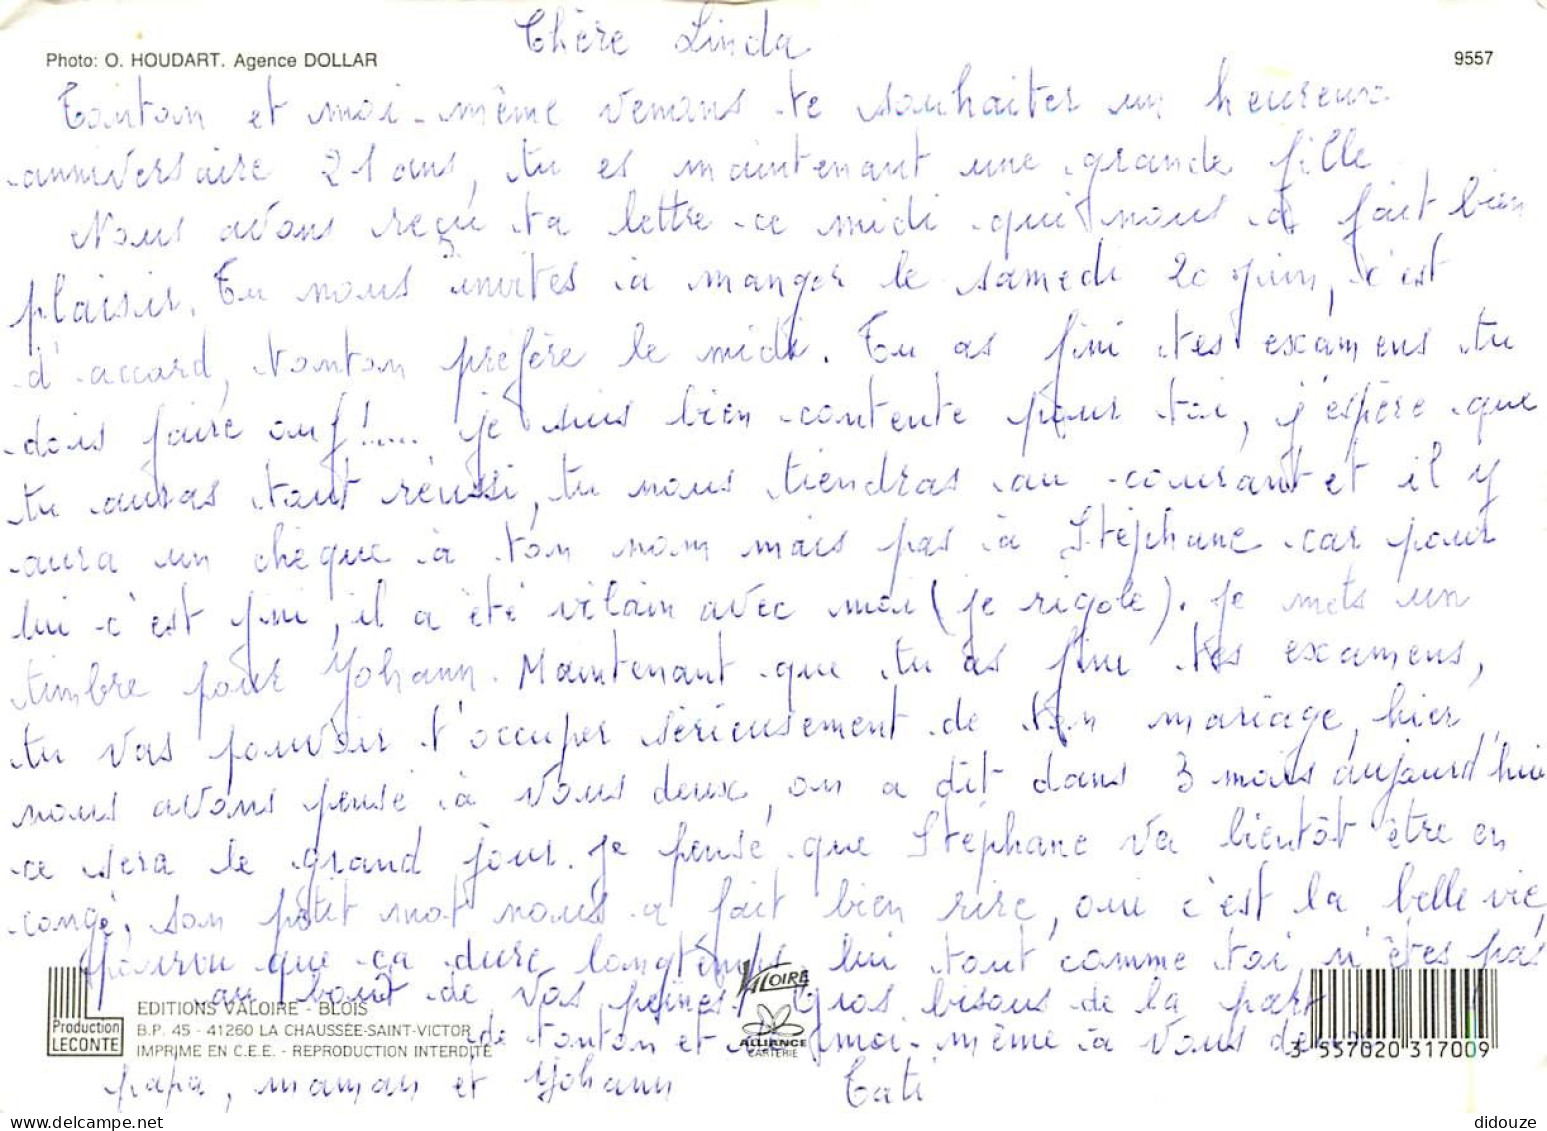 Chère Linda
Photo: O. HOUDART. Agence DOLLAR
9557
Tonton et moi-même venons te souhaiter un heureux
anniversaire 21 ans, tu es maintenant une grande fille
Nous avons reçu ta lettre ce midi qui nous a fait bien
plaisir. Tu nous invites à manger le samedi 20 juin, c'est
d'accord, tonton préfère le midi. Tu as fini tes examens tu
dois faire ouf!..... je suis bien contente pour toi, j'espère que
tu auras tout réussi, tu nous tiendras au courant et il y
aura un chèque à ton nom mais pas à Stéphane car pour
lui c'est fini, il a été vilain avec moi (je rigole). Je mets un
timbre pour Yohann. Maintenant que tu as fini tes examens,
tu vas pouvoir t'occuper sérieusement de ton mariage, hier
nous avons pensé à vous deux, on a dit dans 3 mois aujourd'hui
ce sera le grand jour. Je pense que Stéphane va bientôt être en
congé, son petit mot nous a fait bien rire, oui c'est la belle vie,
pourvu que ça dure longtemps, lui tout comme toi n'êtes pas
au bout de vos peines. Gros bisous de la part
de tonton et de moi-même à vous deux
papa, maman et Yohann Tati
Production
LECONTE
EDITIONS VALOIRE - BLOIS
B.P. 45 - 41260 LA CHAUSSÉE-SAINT-VICTOR
IMPRIMÉ EN C.E.E. - REPRODUCTION INTERDITE
VALOIRE
ALLIANCE
CARTERIE
3 557020 317009
didouze
www.delcampe.net